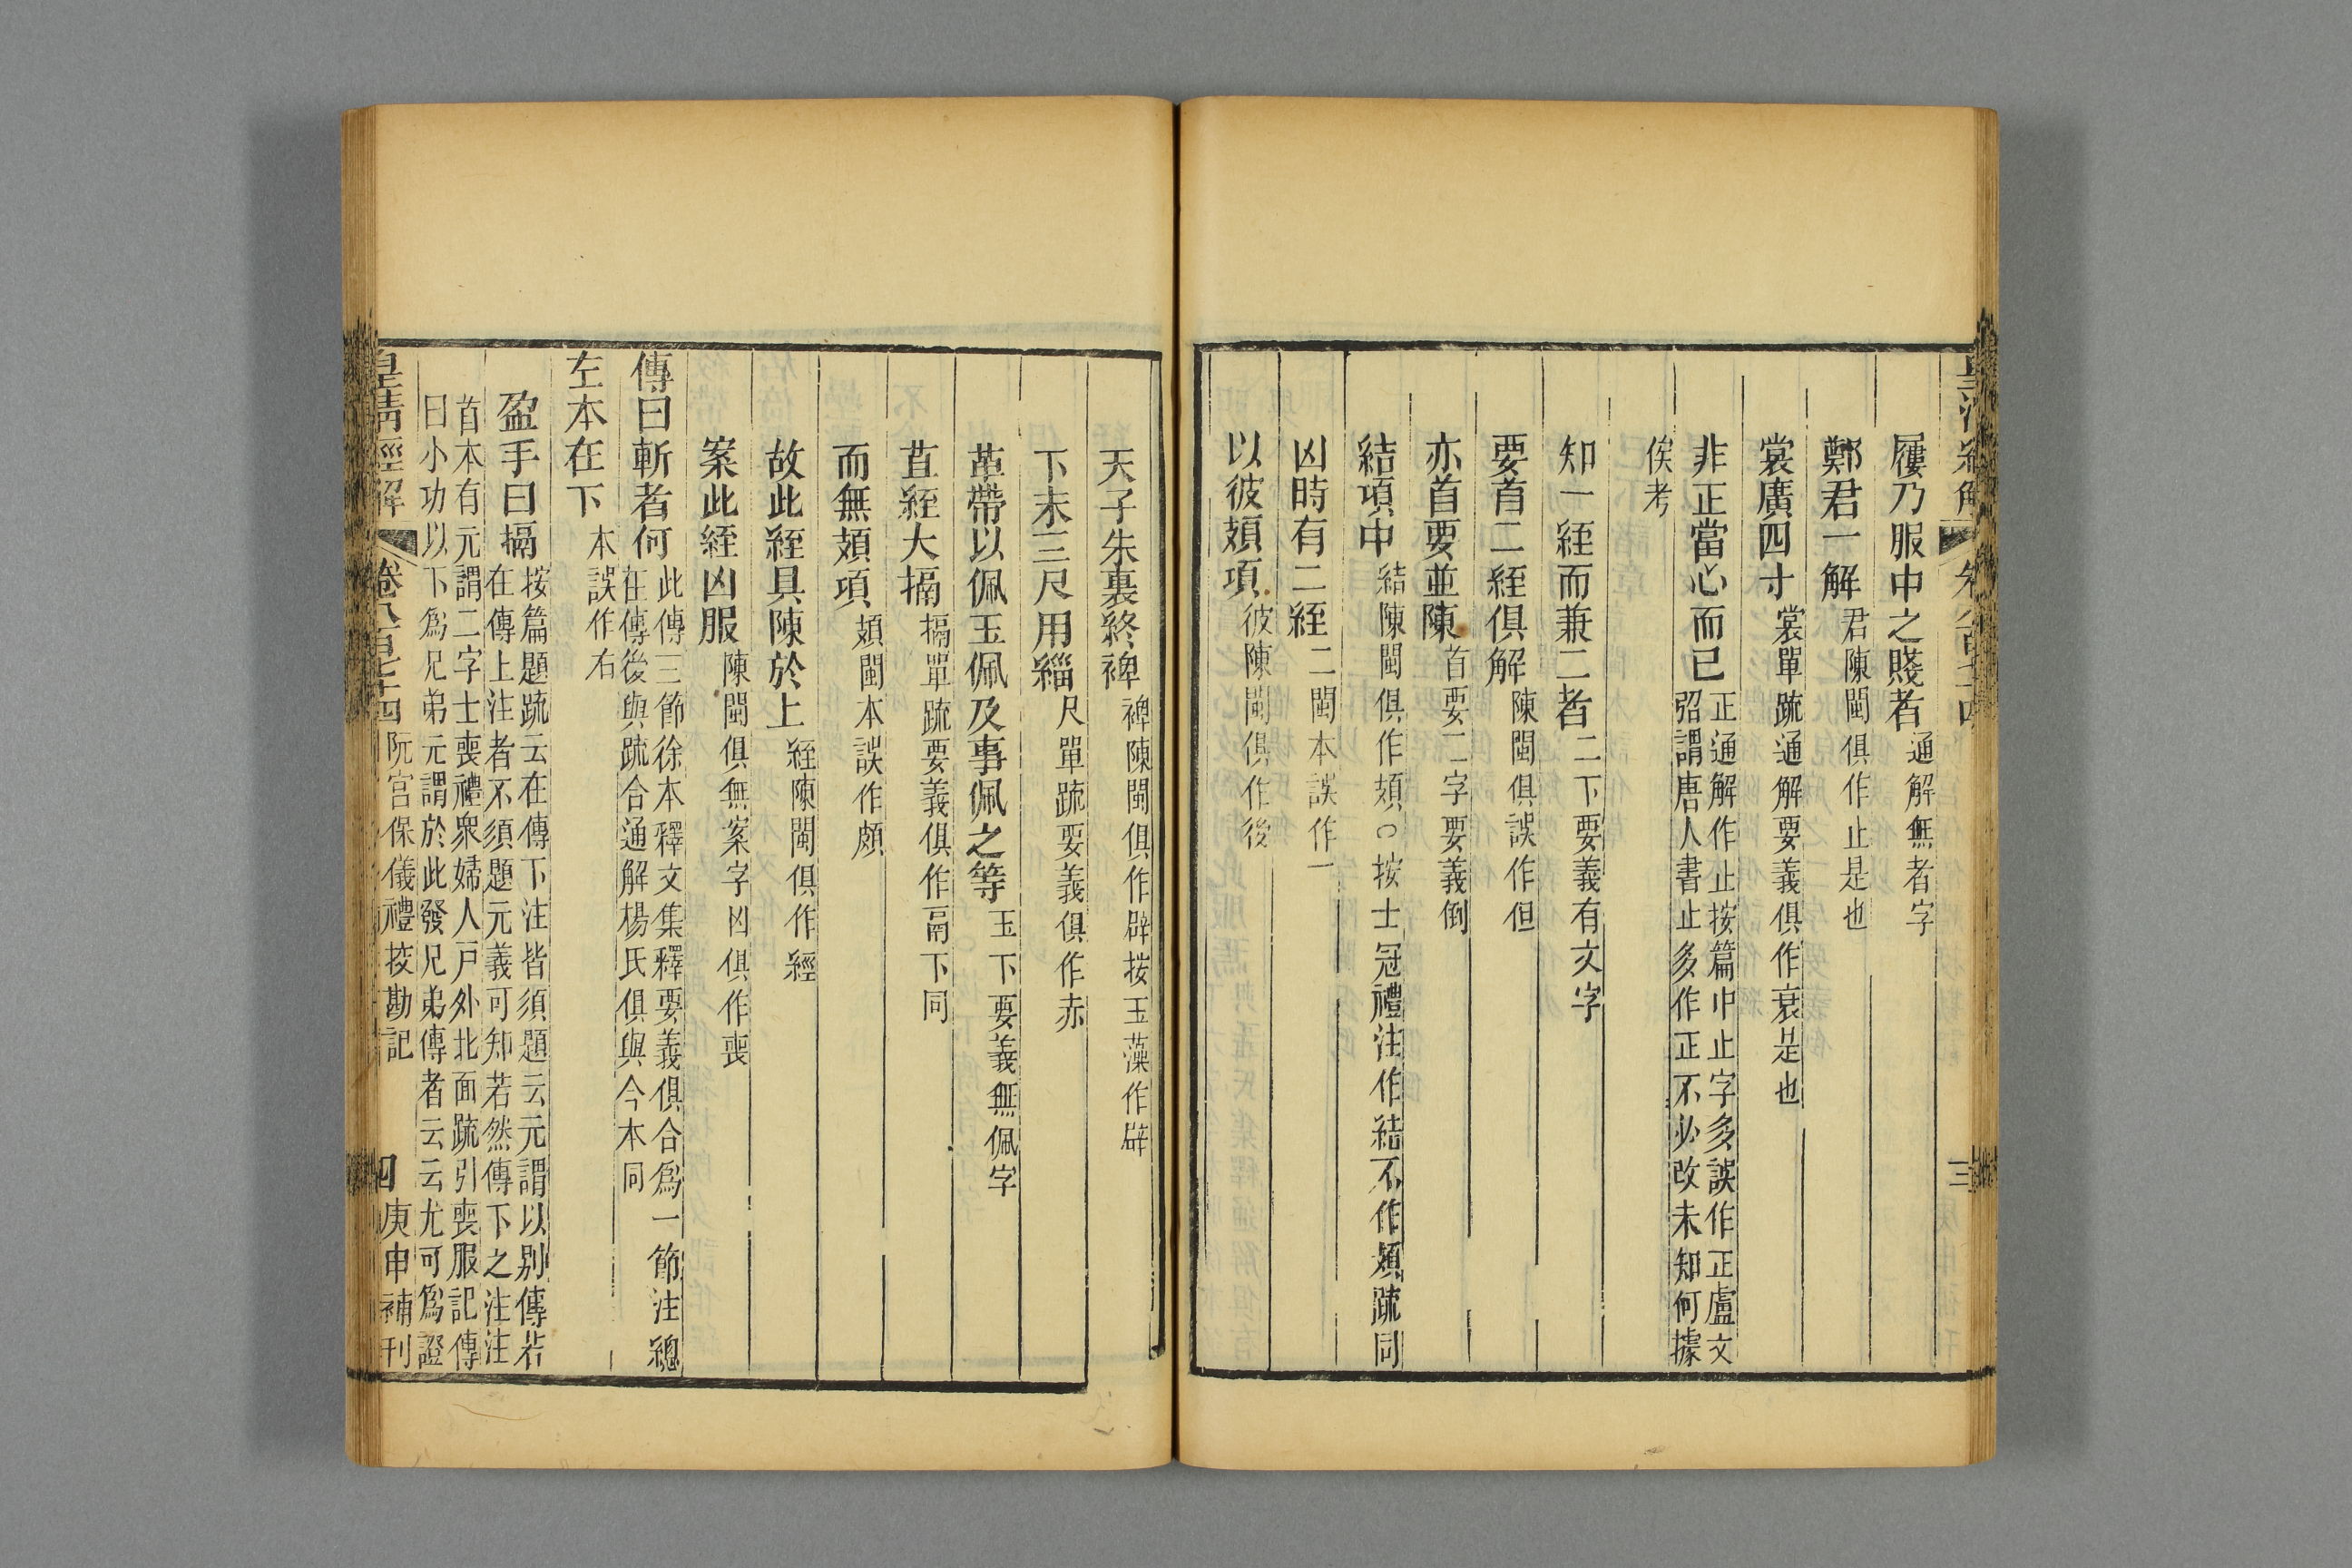 屨乃服中之賤者通解無者字
鄭君一解君陳閩俱作止是也
裳廣四寸裳單疏通解要義俱作衰是也
非正當心而已正通解作止按篇中止字多誤作正盧文
弨謂唐人書止多作正不必改未知何據
俟考
知一絰而兼二者二下要義有文字
要首二絰俱解陳閩俱誤作但
亦首要並陳首要二字要義倒
結項中結陳閩俱作頍○按士冠禮注作結不作頍疏同
凶時有二絰二閩本誤作一
以彼頍項彼陳閩俱作後
天子朱裏終裨裨陳閩俱作辟按玉藻作辟
下末三尺用緇尺單疏要義俱作赤
革帶以佩玉佩及事佩之等玉下要義無佩字
苴絰大搹搹單疏要義俱作鬲下同
而無頍項頍閩本誤作頗
故此絰具陳於上絰陳閩俱作經
案此絰凶服陳閩俱無案字凶俱作喪
傳曰斬者何此傳三節徐本釋文集釋要義俱合爲一節注總
在傳後與疏合通解楊氏俱與今本同
左本在下本誤作右
盈手曰搹按篇題疏云在傳下注皆須題云元謂以别傳若
在傳上注者不須題元義可知若然傳下之注注
首本有元謂二字士喪禮衆婦人戸外北面疏引喪服記傳
曰小功以下爲兄弟元謂於此發兄弟傳者云云尤可爲證
皇清經解 卷八百七十四 阮宮保儀禮挍勘記 四 庚申補刊